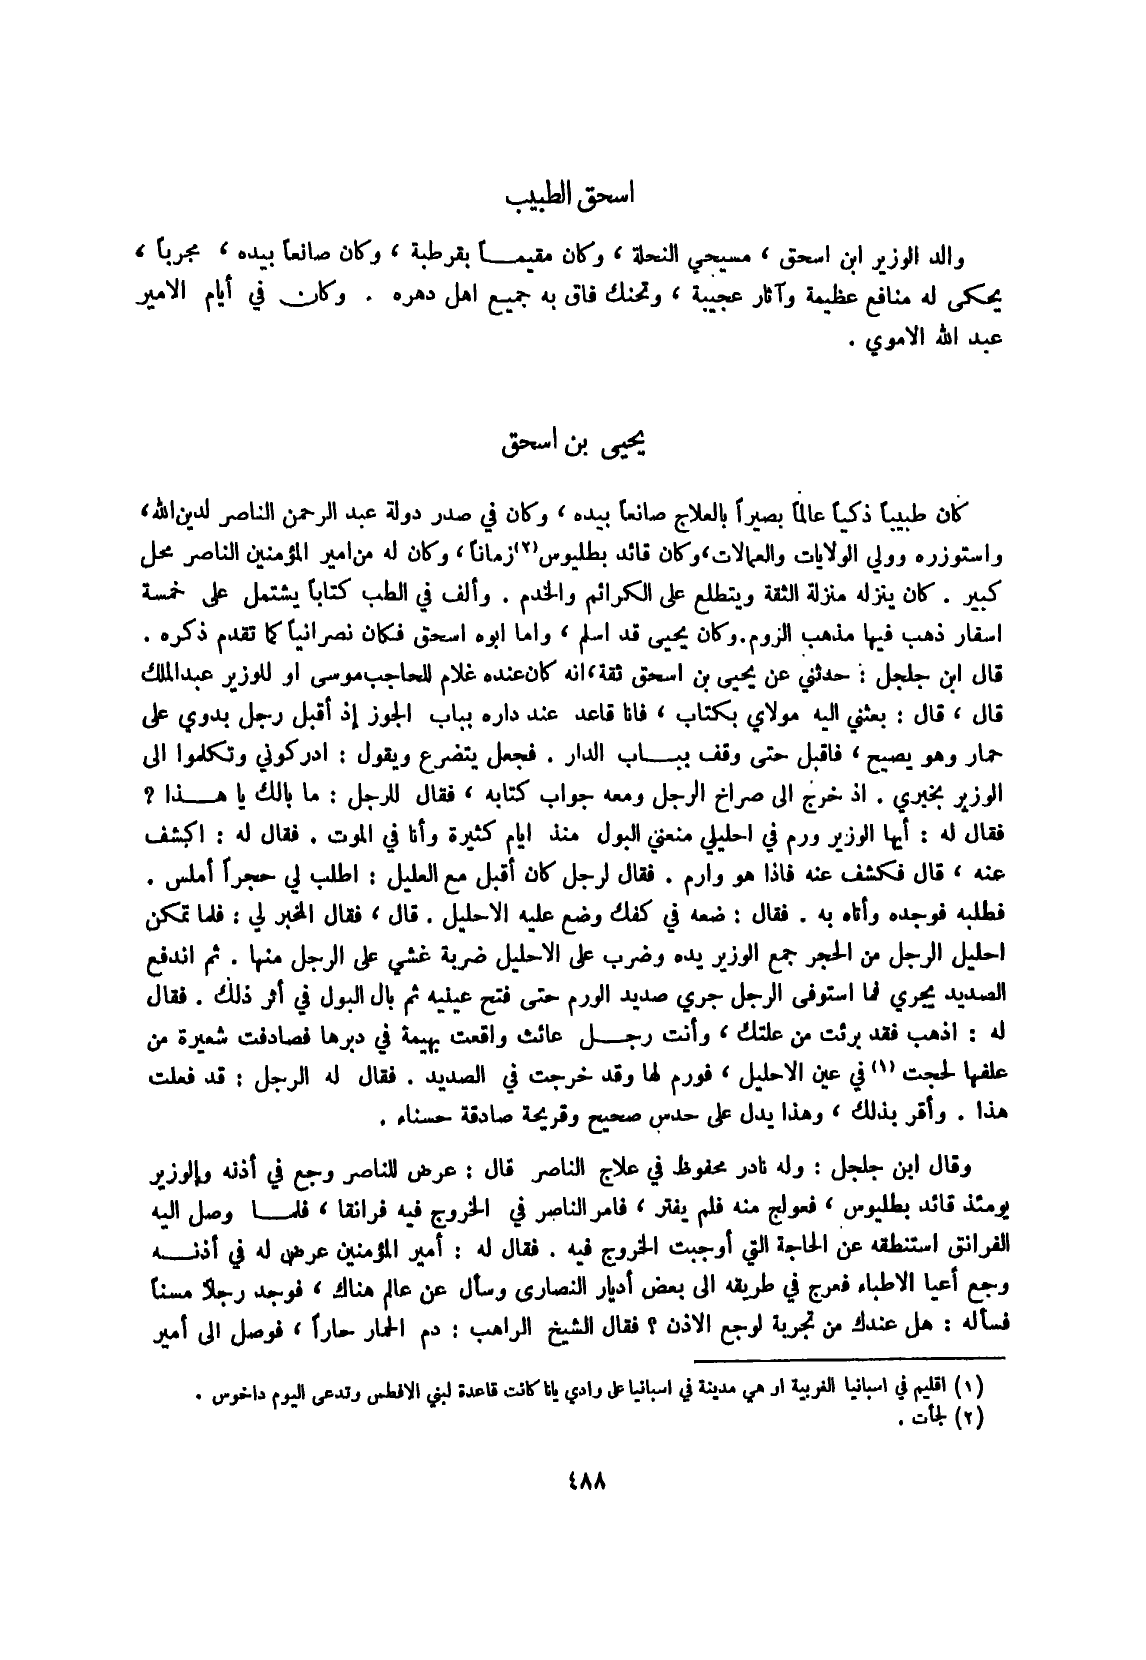 اسحق الطبيب
والد الوزير ابن اسحق ، مسيحي النحلة ، وكان مقيمـــاً بقرطبة ، وكان صانعاً بيده ، مجرباً ،
يحكى له منافع عظيمة وآثار عجيبة ، وتحنك فاق به جميع اهل دهره . وكان في أيام الامير
عبد الله الاموي .
يحيى بن اسحق
كان طبيباً ذكياً عالماً بصيراً بالعلاج صانعاً بيده ، وكان في صدر دولة عبد الرحمن الناصر لدين الله،
واستوزره وولي الولايات والعمالات،وكان قائد بطليوس(٢)زماناً، وكان له من امير المؤمنين الناصر محل
كبير . كان ينزله منزلة الثقة ويتطلع على الكرائم والخدم . وألف في الطب كتاباً يشتمل على خمسة
اسفار ذهب فيها مذهب الروم.وكان يحيى قد اسلم ، واما ابوه اسحق فكان نصرانياً كما تقدم ذكره .
قال ابن جلجل : حدثني عن يحيى بن اسحق ثقة،انه كان عنده غلام للحاجب موسى او للوزير عبد الملك
قال ، قال : بعثني اليه مولاي بكتاب ، فانا قاعد عند داره بباب الجوز إذ أقبل رجل بدوي على
حمار وهو يصيح ، فاقبل حتى وقف ببـــاب الدار . فجعل يتضرع ويقول : ادركوني وتكلموا الى
الوزير بخبري . اذ خرج الى صراخ الرجل ومعه جواب كتابه ، فقال للرجل : ما بالك يا هـــذا ؟
فقال له : أيها الوزير ورم في احليلي منعني البول منذ ايام كثيرة وأنا في الموت . فقال له : اكشف
عنه ، قال فكشف عنه فاذا هو وارم . فقال لرجل كان أقبل مع العليل : اطلب لي حجراً أملس .
فطلبه فوجده وأتاه به . فقال : ضعه في كفك وضع عليه الاحليل . قال ، فقال المخبر لي : فلما تمكن
احليل الرجل من الحجر جمع الوزير يده وضرب على الاحليل ضربة غشي على الرجل منها . ثم اندفع
الصديد يجري فما استوفى الرجل جري صديد الورم حتى فتح عينيه ثم بال البول في أثر ذلك . فقال
له : اذهب فقد برئت من علتك ، وأنت رجـــل عائث واقعت بهيمة في دبرها فصادفت شعيرة من
علفها لحجت (١) في عين الاحليل ، فورم لها وقد خرجت في الصديد . فقال له الرجل : قد فعلت
هذا . وأقر بذلك ، وهذا يدل على حدس صحيح وقريحة صادقة حسناء .
وقال ابن جلجل : وله نادر محفوظ في علاج الناصر قال : عرض للناصر وجع في أذنه والوزير
يومئذ قائد بطليوس ، فعولج منه فلم يفتر ، فامر الناصر في الخروج فيه فرانقا ، فلمـــا وصل اليه
الفرانق استنطقه عن الحاجة التي أوجبت الخروج فيه . فقال له : أمير المؤمنين عرض له في أذنـــه
وجع أعيا الاطباء فعرج في طريقه الى بعض أديار النصارى وسأل عن عالم هناك ، فوجد رجلاً مسناً
فسأله : هل عندك من تجربة لوجع الاذن ؟ فقال الشيخ الراهب : دم الحمار حاراً ، فوصل الى أمير
(١) اقليم في اسبانيا الغربية او هي مدينة في اسبانيا على وادي يانا كانت قاعدة لبني الافطس وتدعى اليوم داخوس .
(٢) لجأت .
٤٨٨